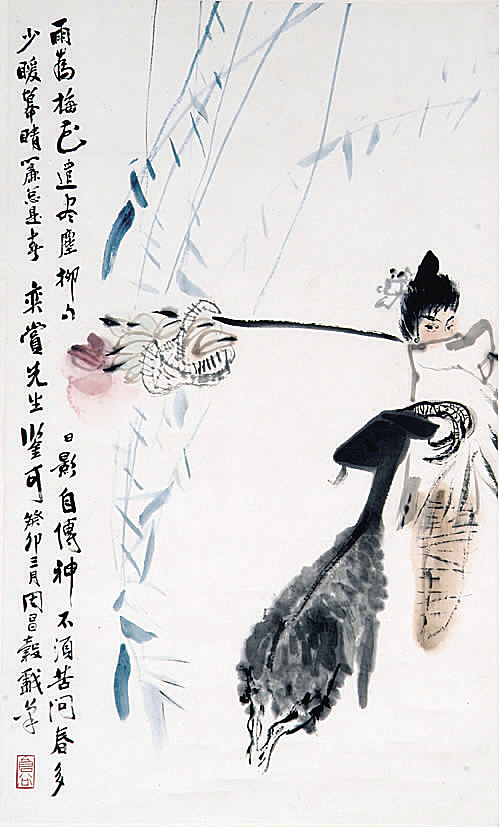 雨為梅花遣盡塵柳勾日影自傳神不須苦問春多
少暖幕晴簾总是春 奕賞先生鑒可 癸卯三月周昌穀戲筆
昌谷